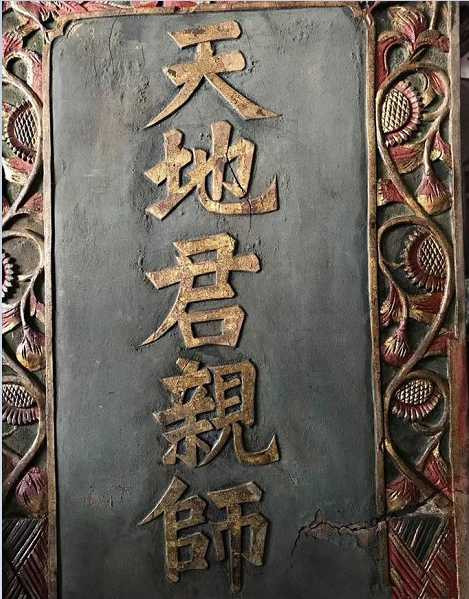 天地君親師